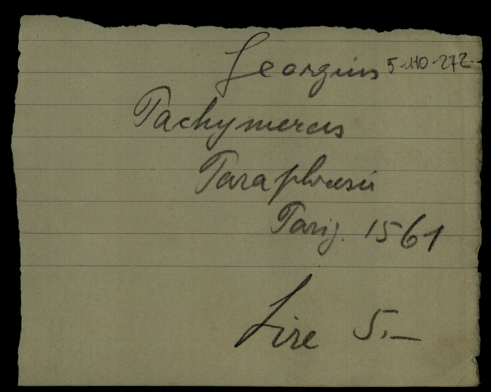 Georgius 5-110-272-
Pachymerus
Paraphrasis
Parig. 1561
Lire 5.—